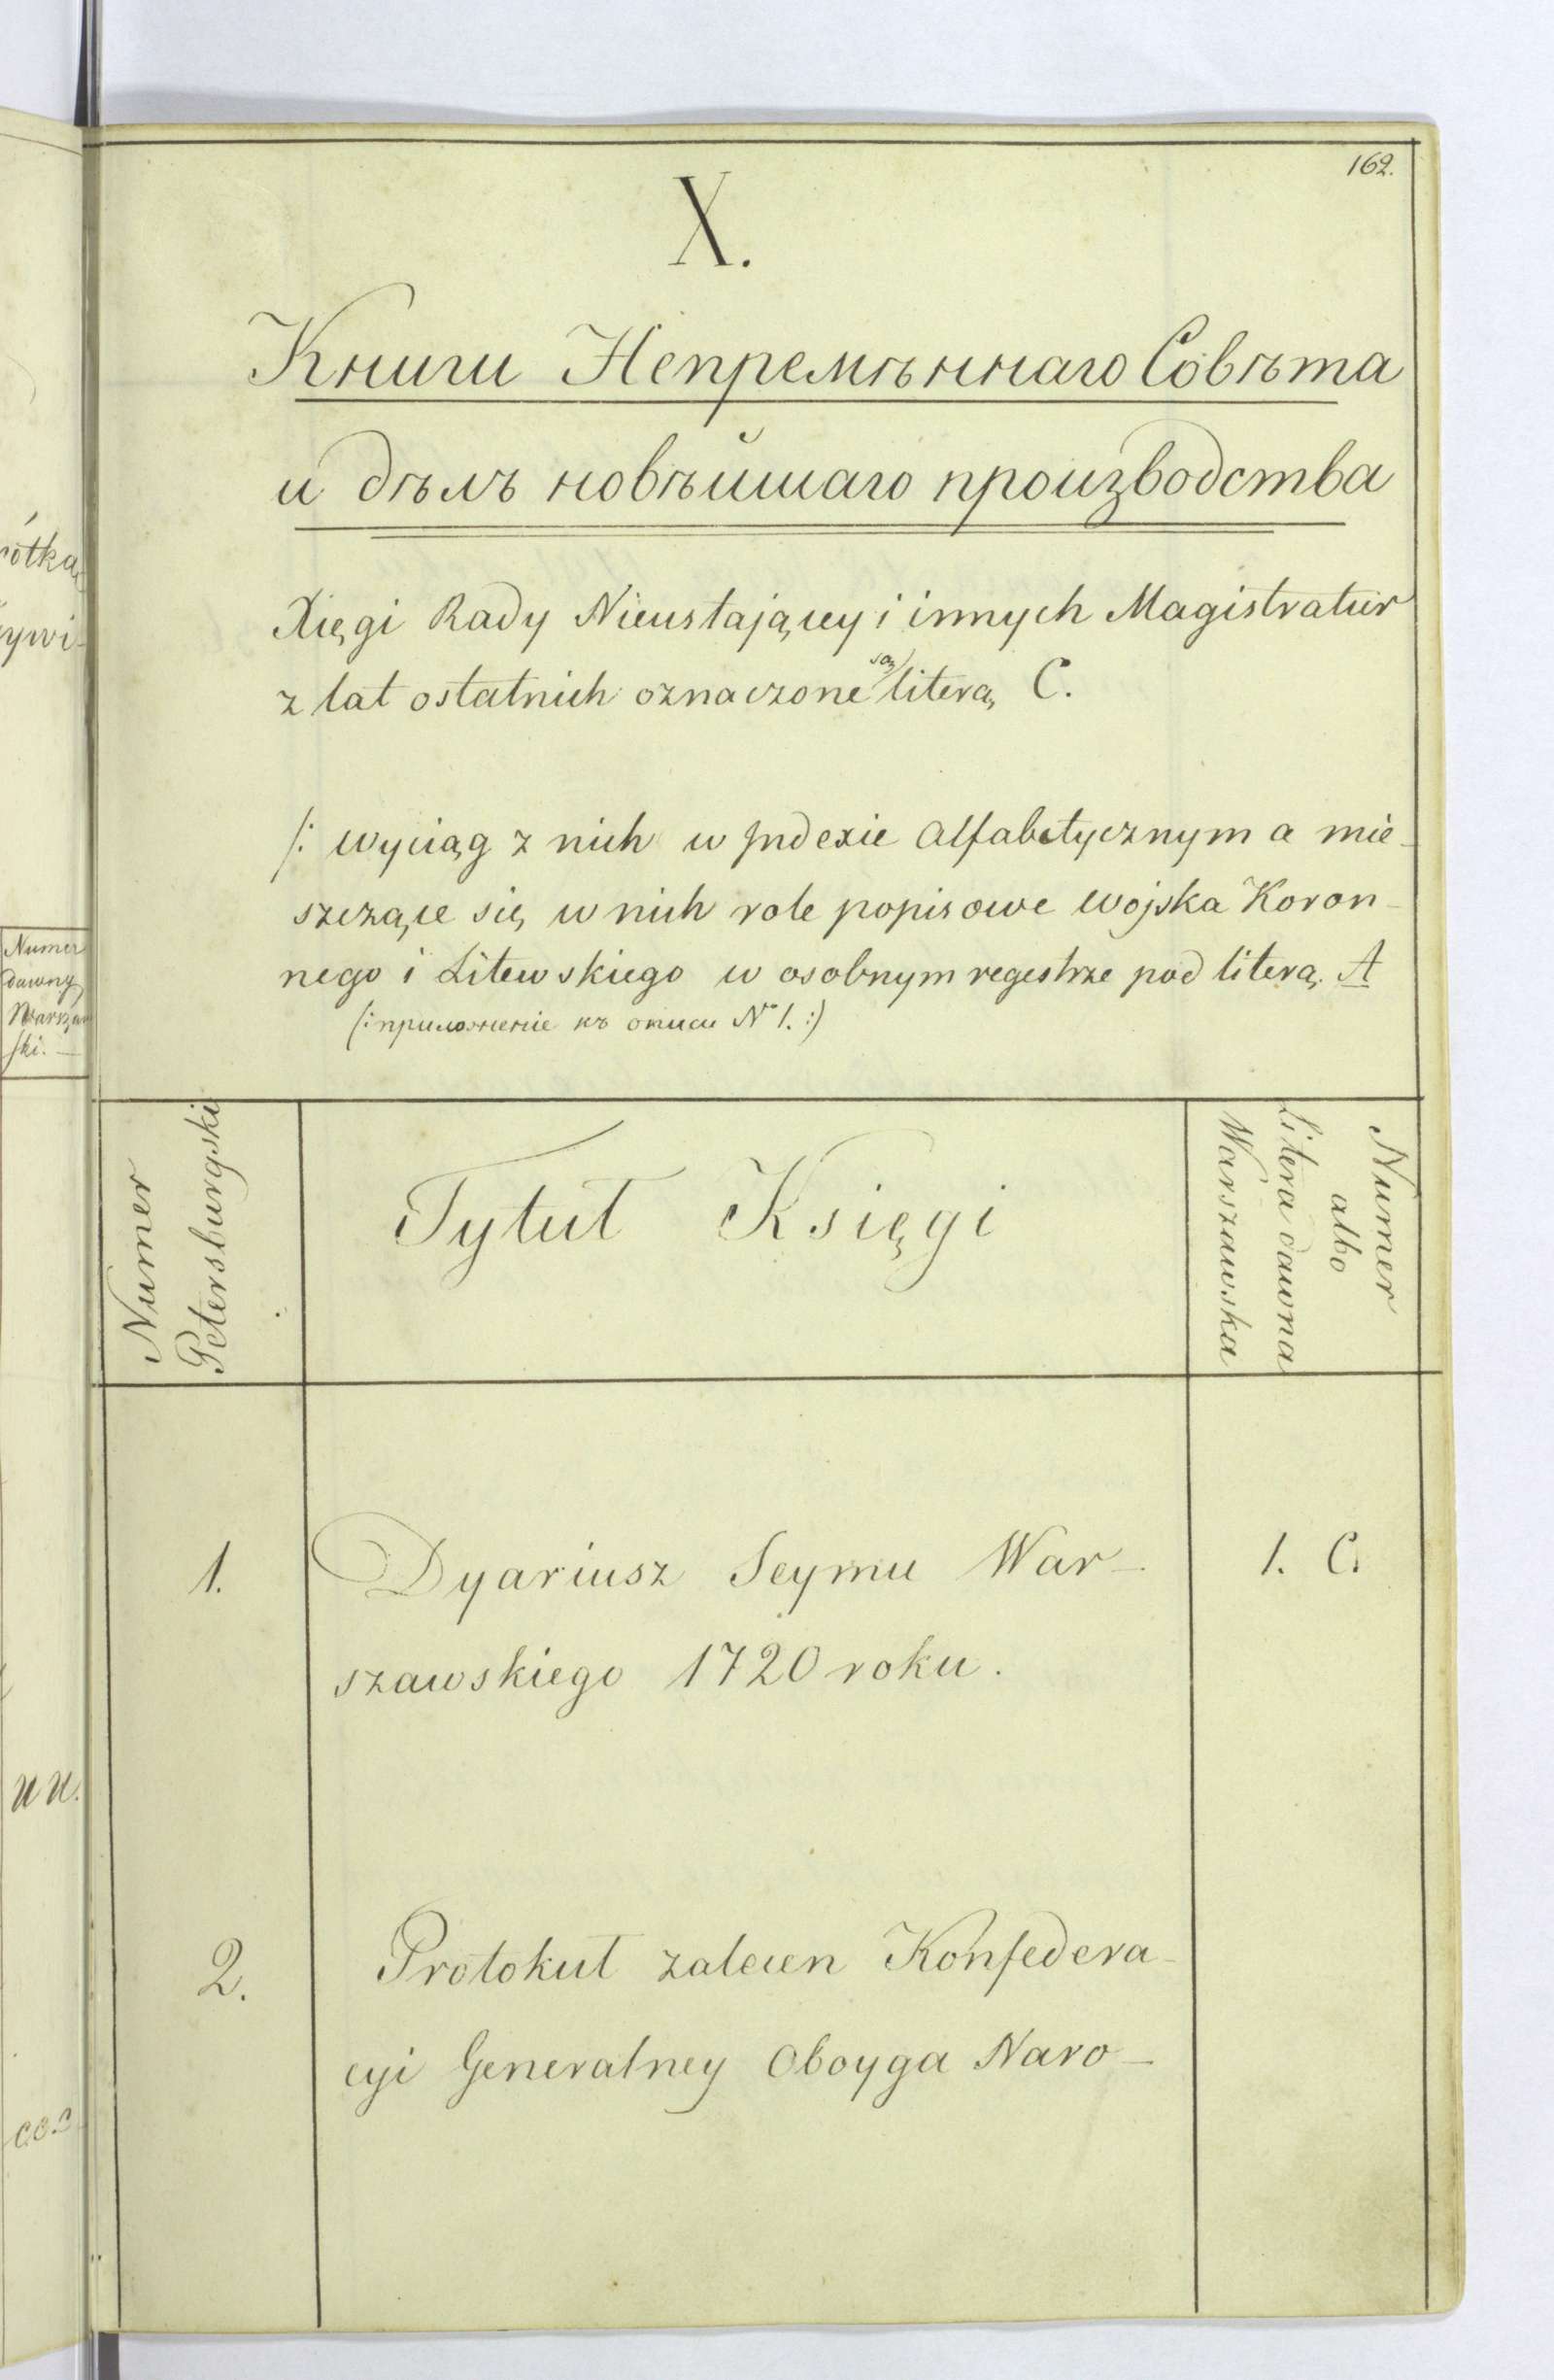 162.
X.
Книги Непремѣннаго Совѣта
и дѣлъ новѣйшаго производства
Xięgi Rady Nieustaiącey i innych Magistratur
z lat ostatnich oznaczone są literą C.
/: wyciąg z nich w Indexie Alfabetycznym a mie-
szczące się w nich role popisowe wojska Koron-
nego i Litewskiego w osobnym regestrze pod literą A
(: приложеніе къ описи № 1. :)
Numer
Petersburgski
Tytuł Księgi
Numer
albo
Litera dawna
Warszawska
1. Dyariusz Seymu War- 1. C.
szawskiego 1720 roku.
2. Protokuł zaleceń Konfedera-
cyi Generalney Oboyga Naro-
ótką
ywi-
Numer
dawny
Warszaw
ski. —